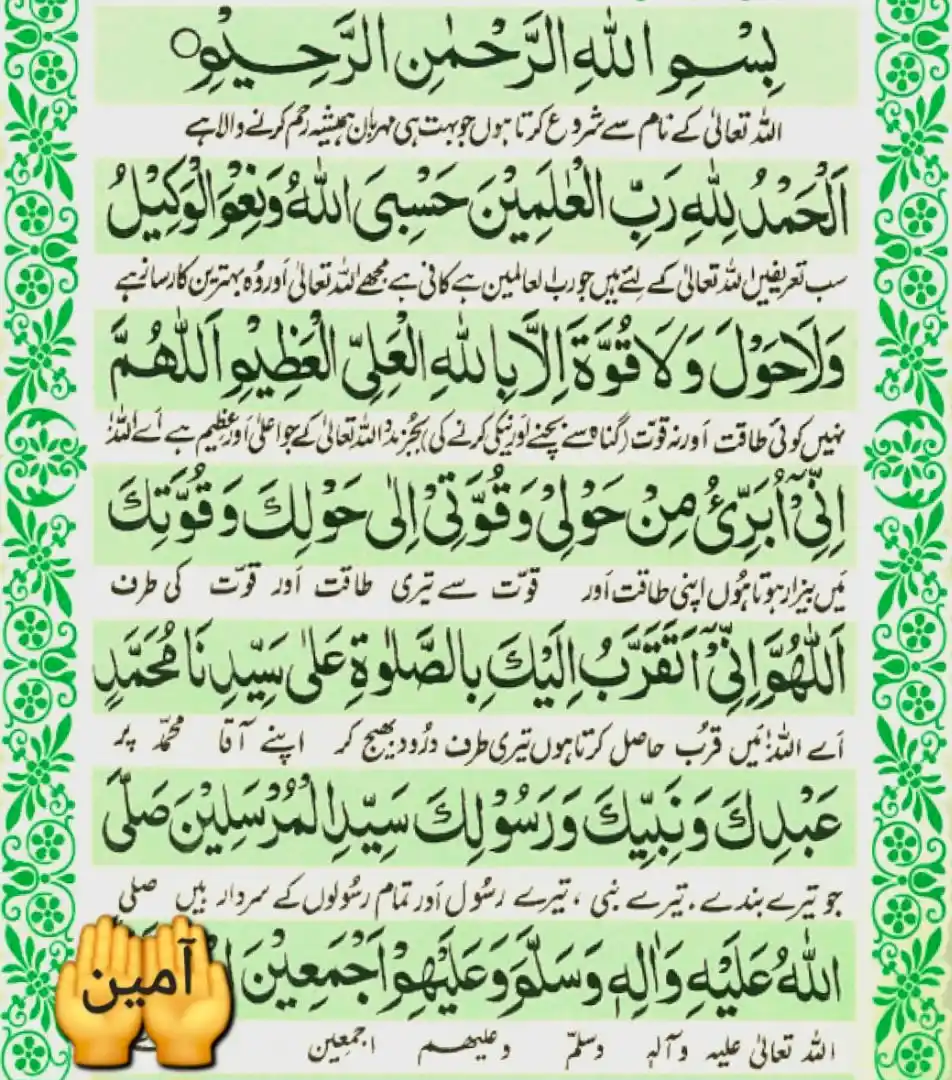 بِسْمِ اللهِ الرَّحْمٰنِ الرَّحِيْمِ
اللہ تعالیٰ کے نام سے شروع کرتا ہوں جو بہت ہی مہربان ہمیشہ رحم کرنے والا ہے
اَلْحَمْدُ لِلّٰهِ رَبِّ الْعٰلَمِيْنَ حَسْبِىَ اللهُ وَنِعْمَ الْوَكِيْلُ
سب تعریفیں اللہ تعالیٰ کے لئے ہیں جو رب العالمین ہے کافی ہے مجھے اللہ تعالیٰ اور وُہ بہترین کارساز ہے
وَلَا حَوْلَ وَلَا قُوَّةَ اِلَّا بِاللهِ الْعَلِىِّ الْعَظِيْمِ اَللّٰهُمَّ
نہیں کوئی طاقت اَور نہ قوت (گناہ سے بچنے اَور نیکی کرنے کی) بجز مدد اللہ تعالیٰ کے جو اعلیٰ اَور عظیم ہے اَے اللہ!
اِنِّىْۤ اُبَرِّئُ مِنْ حَوْلِىْ وَقُوَّتِىْ اِلٰى حَوْلِكَ وَقُوَّتِكَ
مَیں بیزار ہوتا ہُوں اپنی طاقت اَور قوّت سے تیری طاقت اَور قوّت کی طرف
اَللّٰهُمَّ اِنِّىْۤ اَتَقَرَّبُ اِلَيْكَ بِالصَّلٰوةِ عَلٰى سَيِّدِنَا مُحَمَّدٍ
اَے اللہ! مَیں قرُب حاصل کرتا ہوں تیری طرف درُود بھیج کر اپنے آقا محمّد پر
عَبْدِكَ وَنَبِيِّكَ وَرَسُوْلِكَ سَيِّدِ الْمُرْسَلِيْنَ صَلَّى
جو تیرے بندے، تیرے نبی، تیرے رسُول اَور تمام رسُولوں کے سردار ہیں صلی
اللهُ عَلَيْهِ وَاٰلِهٖ وَسَلَّمَ وَعَلَيْهِمْ اَجْمَعِيْنَ
آمین
اللہ تعالیٰ علیہ وآلہٖ وسلّم وعلیھم اجمعین